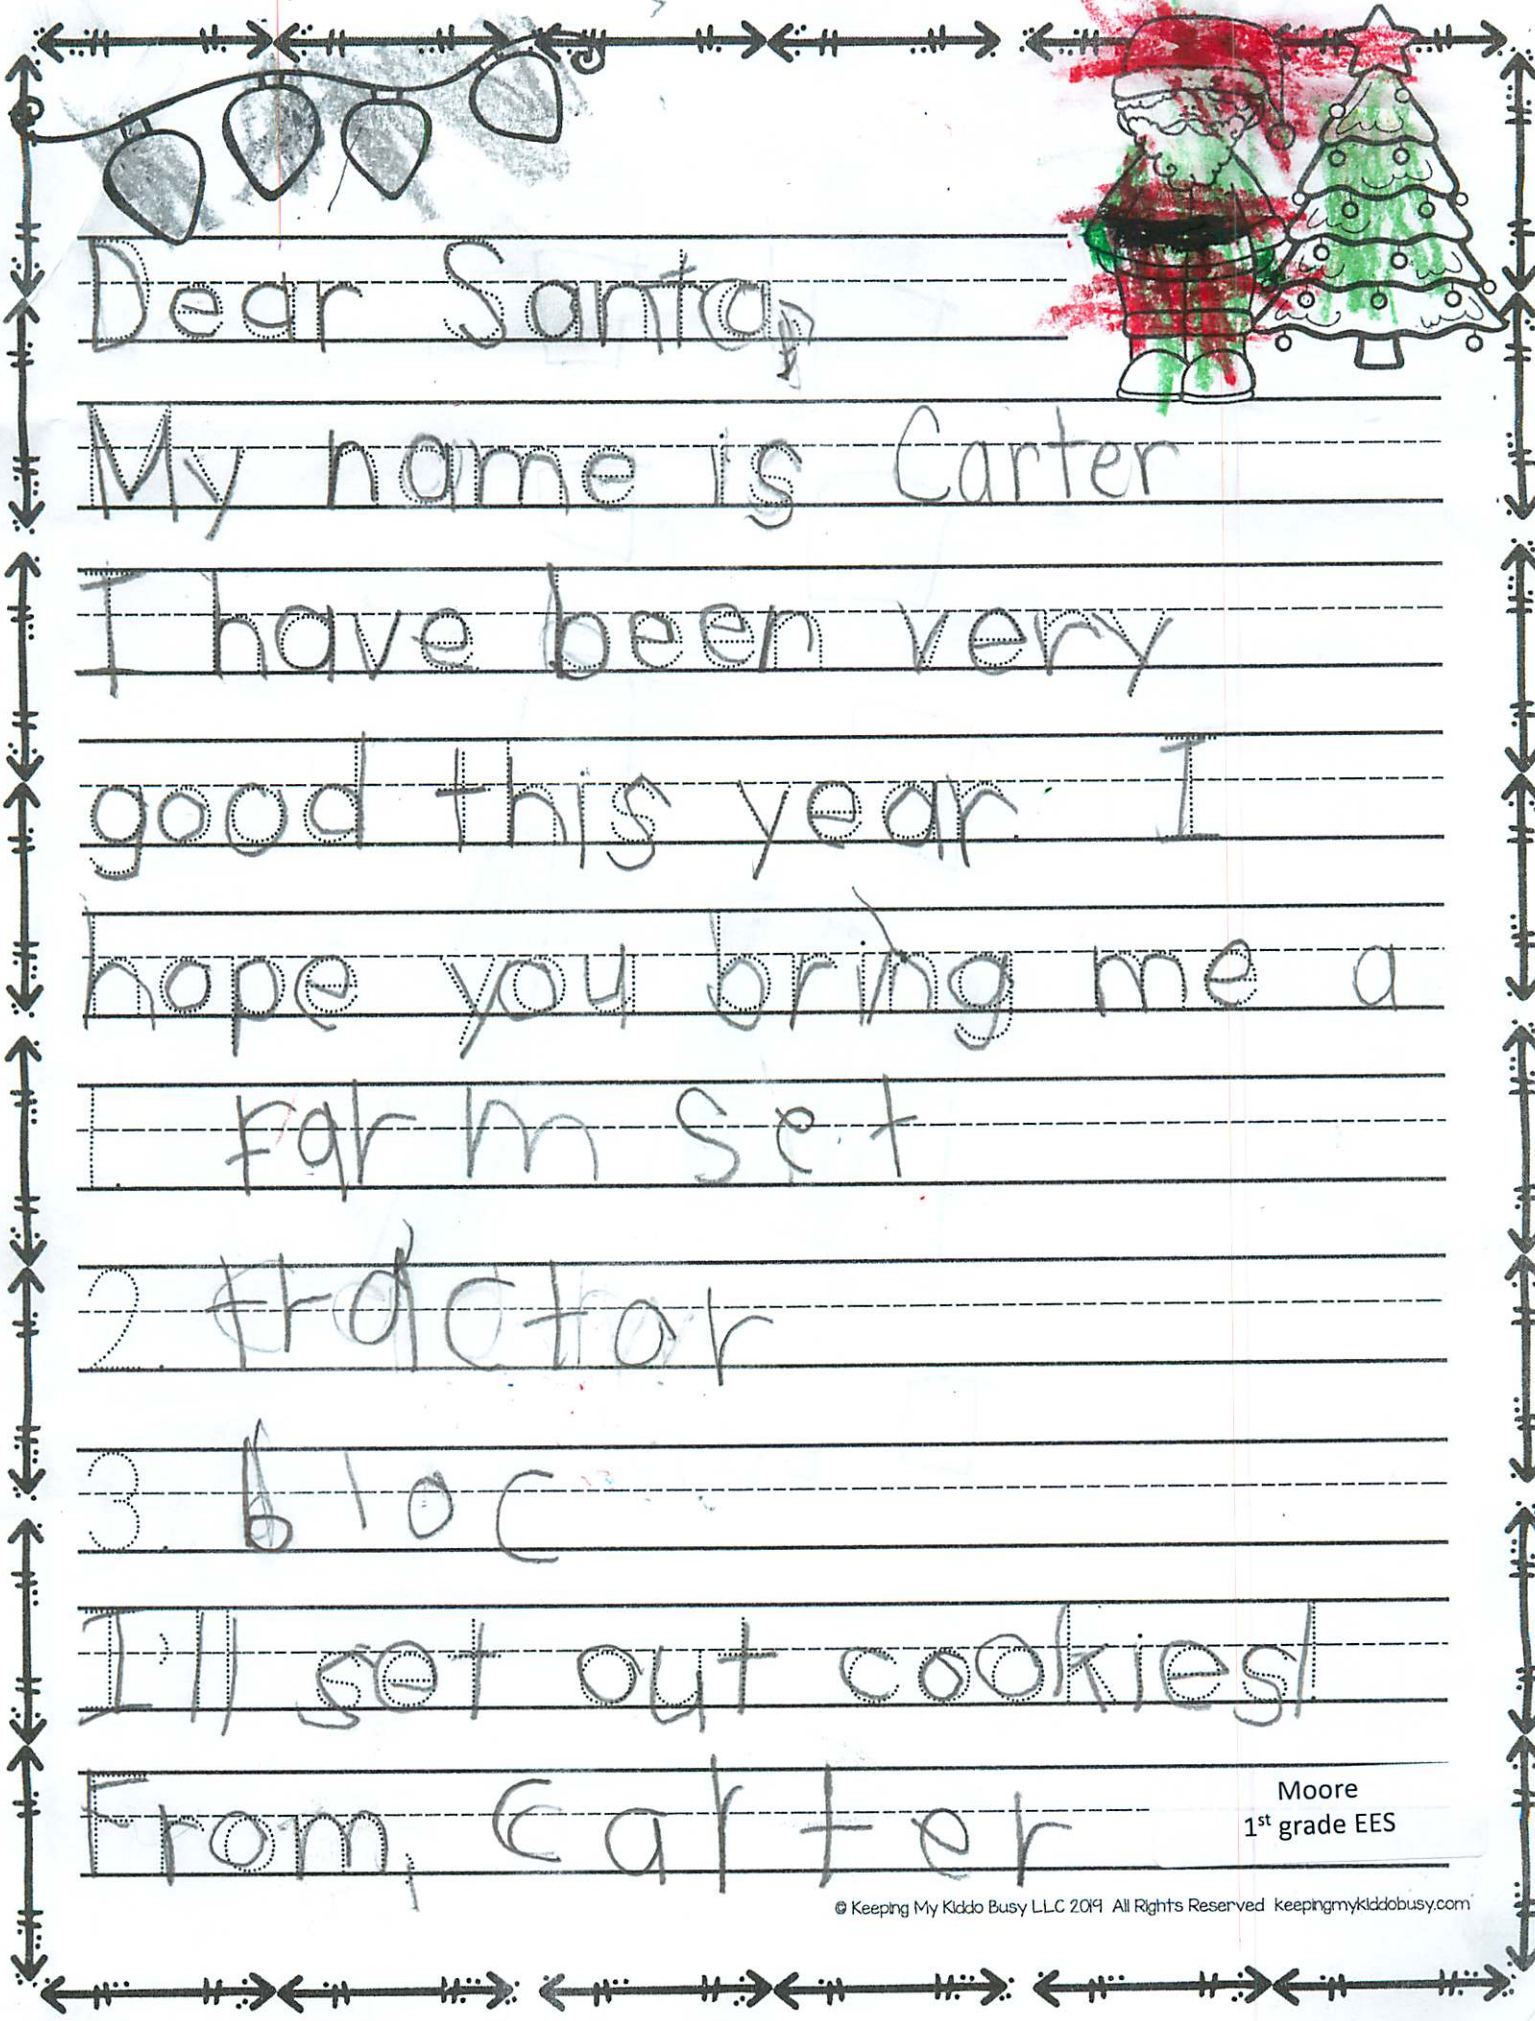 Dear Santa,
My name is Carter
I have been very
good this year. I
hope you bring me a
1. Farm set
2. tractor
3. bloc
I'll set out cookies!
From, Carter
Moore
1st grade EES
© Keeping My Kiddo Busy LLC 2019 All Rights Reserved keepingmykiddobusy.com